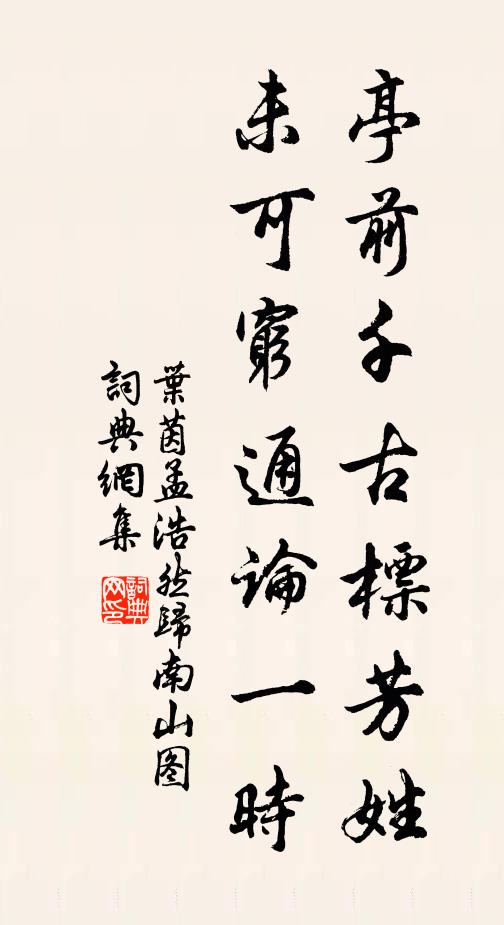 亭前千古標芳姓
未可窮通論一時
葉茵孟浩然歸南山图
詞典網集
詞典网印